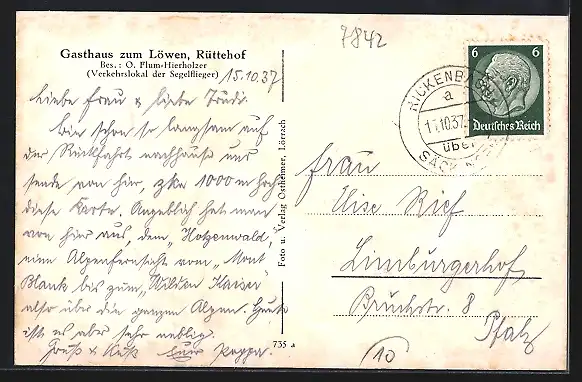 7842
Gasthaus zum Löwen, Rüttehof
Bes.: O. Flum-Hierholzer
(Verkehrslokal der Segelflieger)
15.10.37
Liebe Frau & liebe Trudi.
bin schon so langsam auf
der Rückfahrt nachhause und
sende von hier, zka 1000 m hoch
diese Karte. Angeblich hat man
von hier aus, dem „Hotzenwald",
eine Alpenfernsicht vom „Mont
Blank bis zum „Wilden Kaiser"
also über die ganzen Alpen. Heute
ist es aber sehr neblig.
Gruß & Kuß Euer Pappa.
Foto u. Verlag Ostheimer, Lörrach
735 a
6 6
Deutsches Reich
RICKENBACH
a
15.10.37
über
SÄCKINGEN
Frau
Elise Rief
Limburgerhof
Bruchstr. 8
Pfalz
10